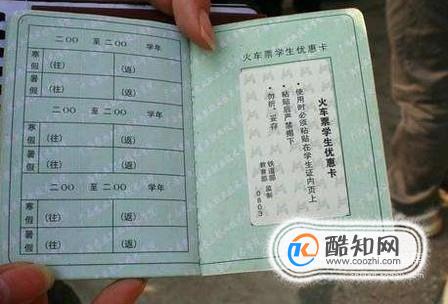 二00 至 二00 学年
寒假 (往) (返)
暑假 (往) (返)
二00 至 二00 学年
寒假 (往) (返)
暑假 (往) (返)
二00 至 二00 学年
寒假 (往) (返)
暑假 (往) (返)
火车票学生优惠卡
火车票学生优惠卡
•使用时必须粘贴在学生证内页上
•粘贴后严禁揭下
•勿折、妥存
铁道部
教育部
监制
0803
酷知网
www.coozhi.com